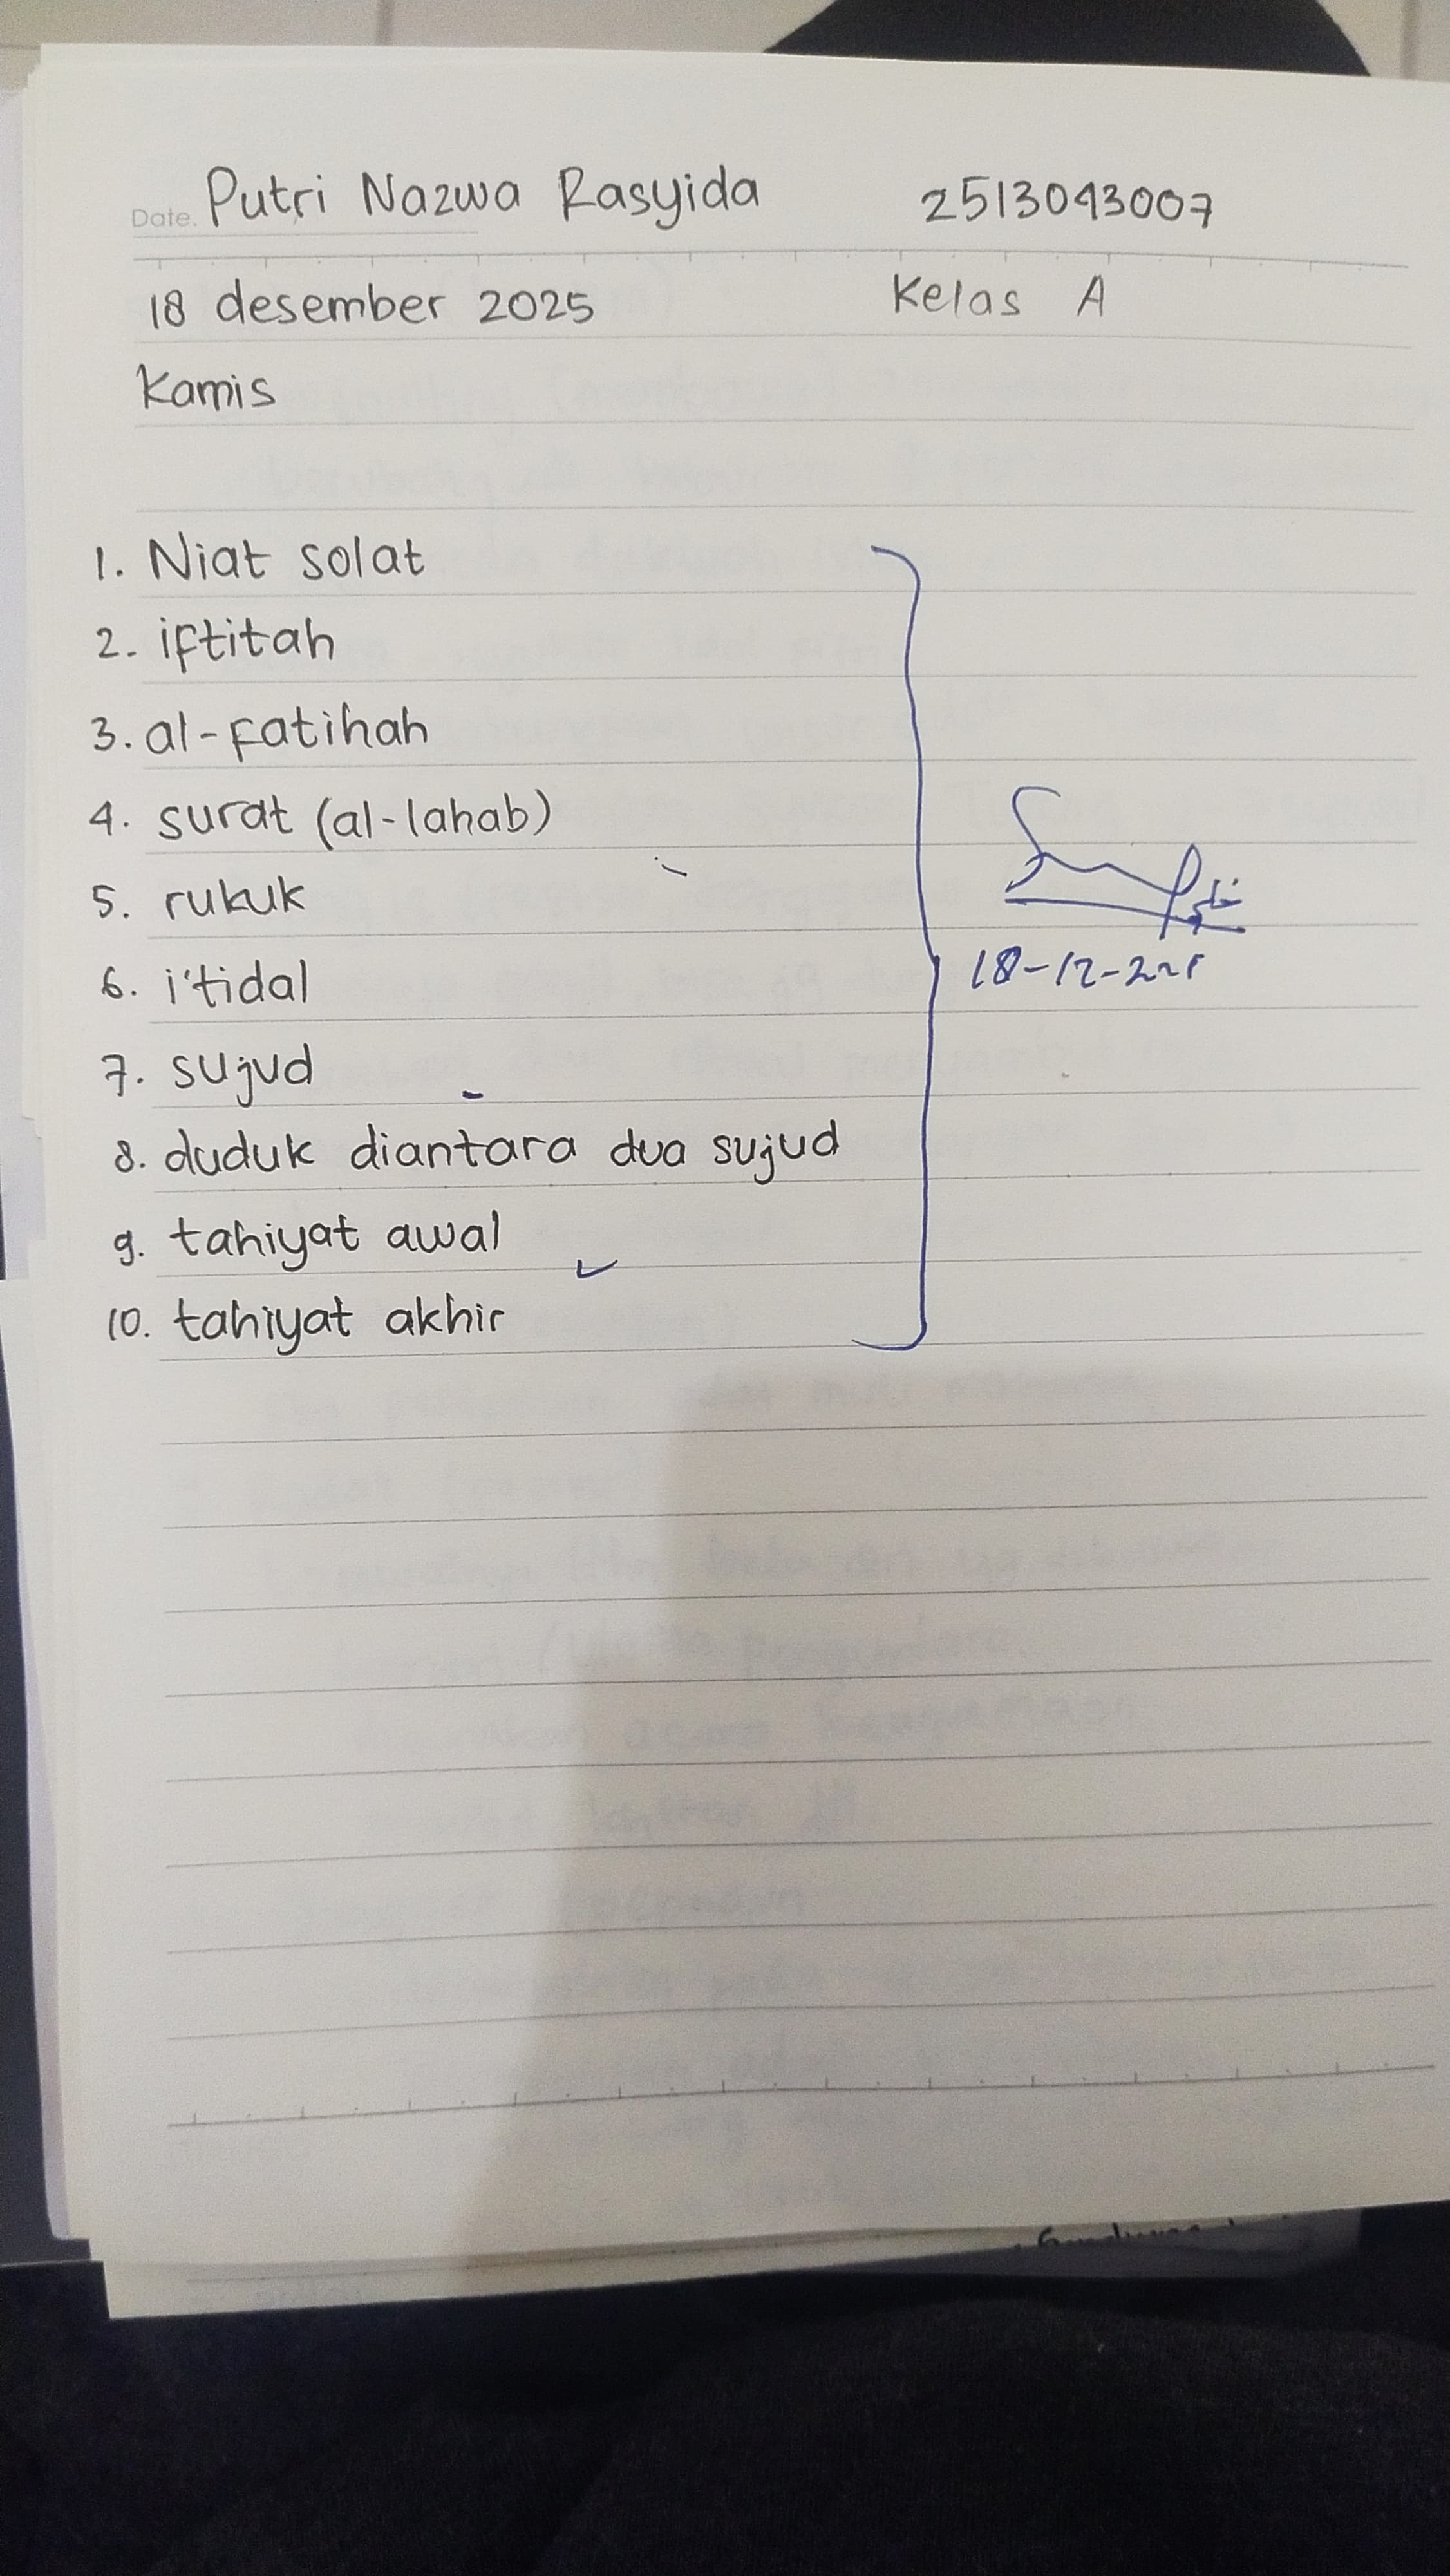 Date. Putri Nazwa Rasyida 2513043007
18 desember 2025 Kelas A
Kamis
1. Niat solat
2. iftitah
3. al-fatihah
4. surat (al-lahab)
5. rukuk
6. i'tidal
7. sujud
8. duduk diantara dua sujud
9. tahiyat awal
10. tahiyat akhir
18-12-